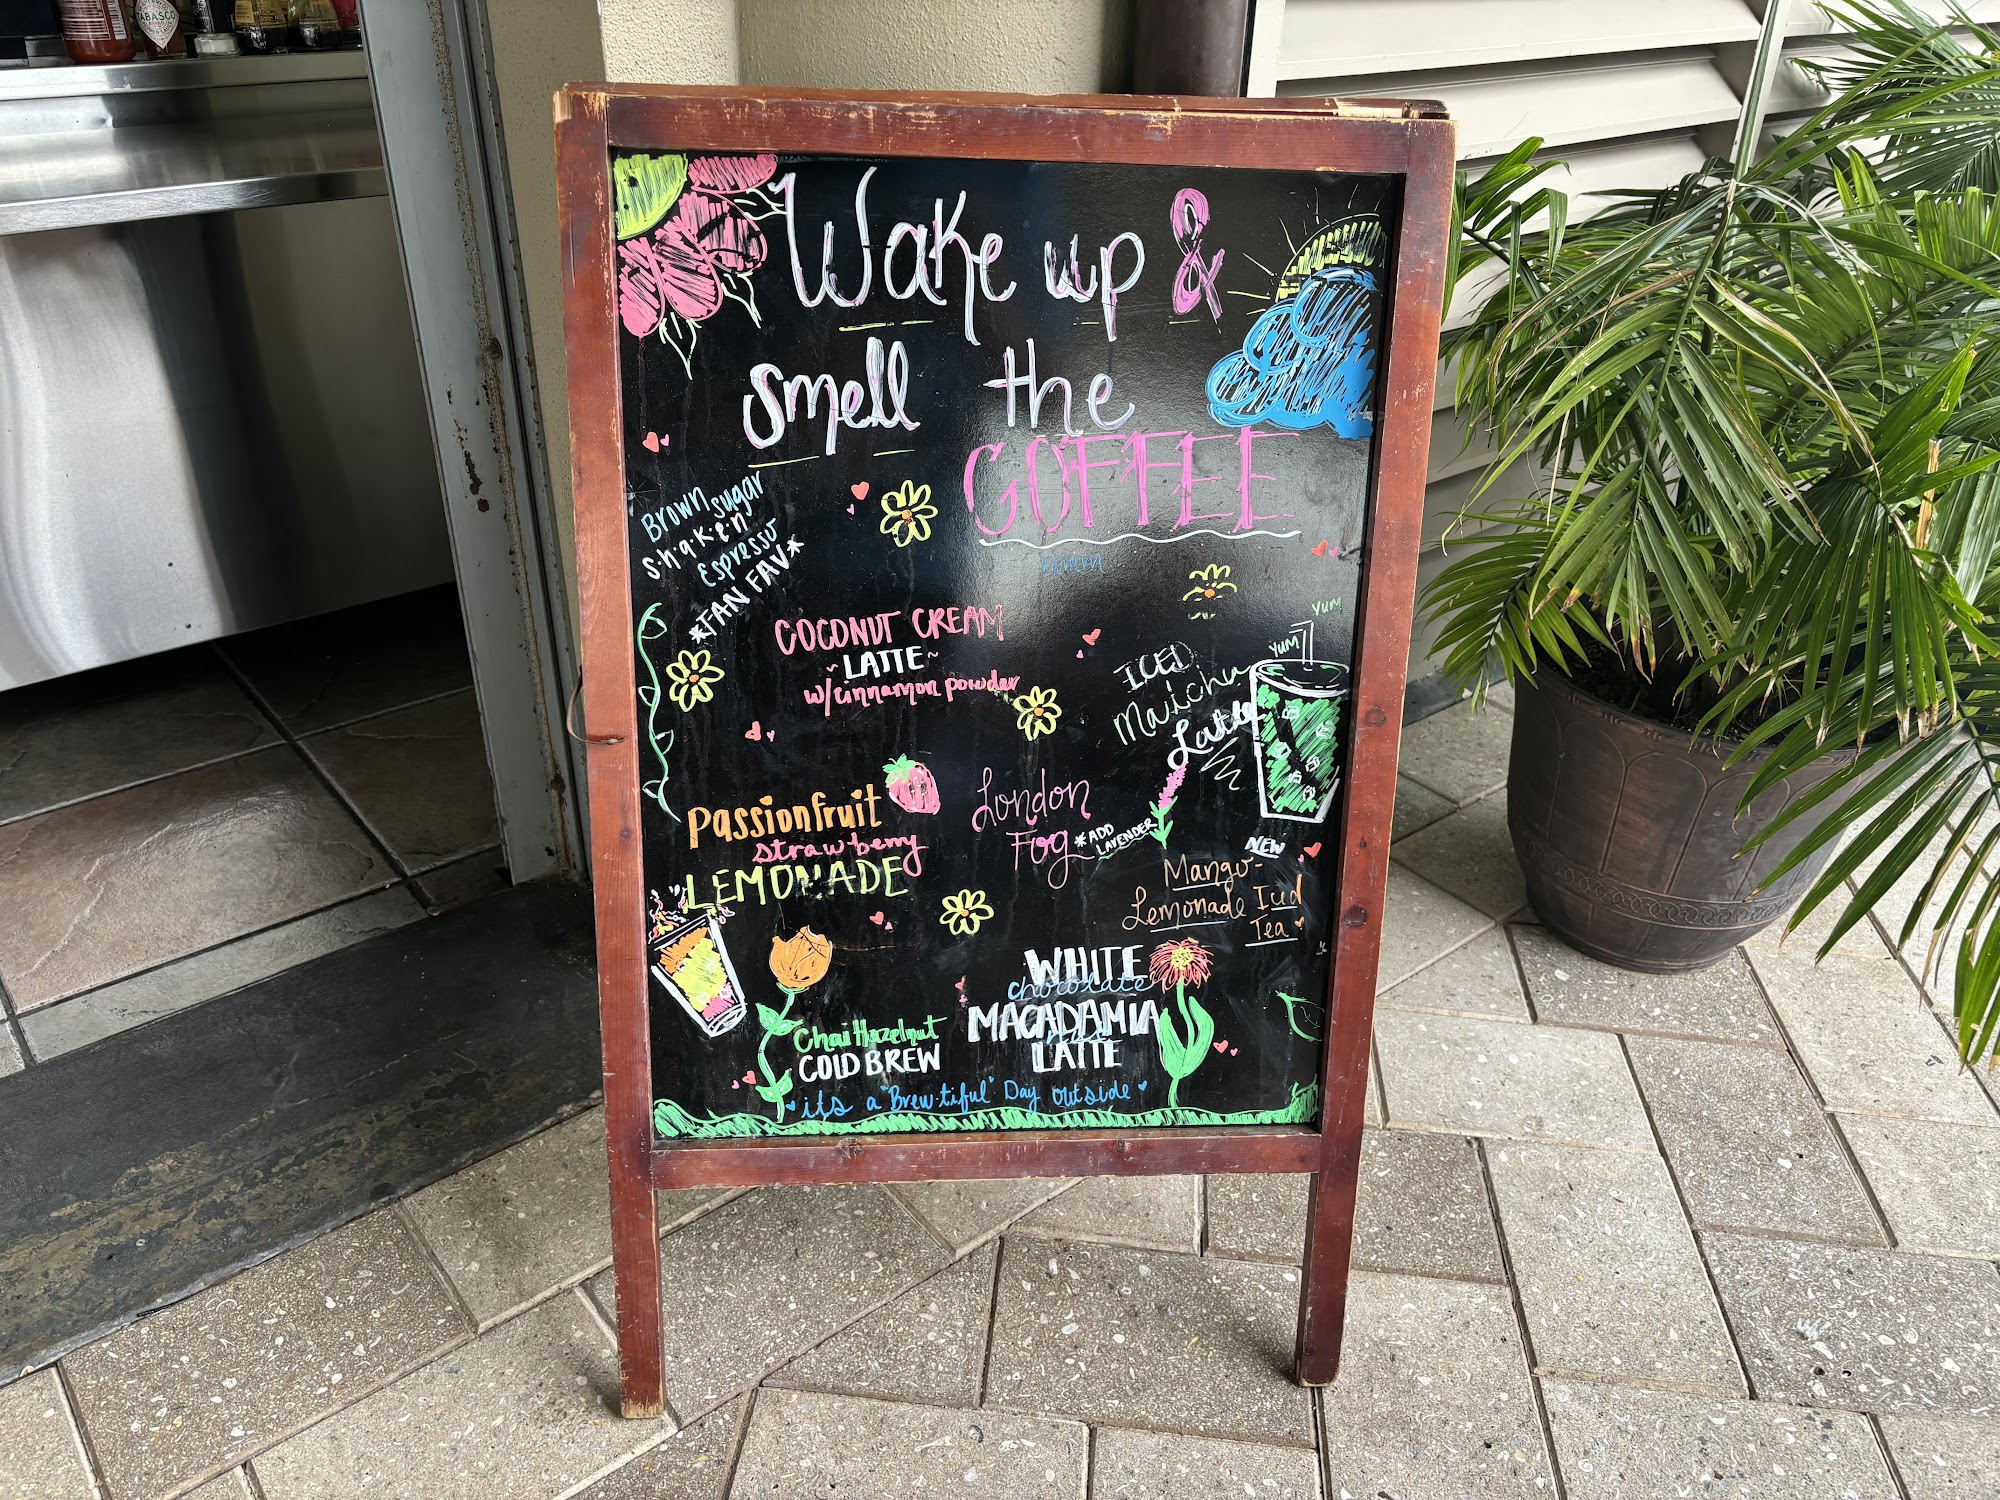 TABASCO
Wake up &
smell the
COFFEE
Brown sugar
s·h·a·k·e·n
Espresso
*FAN FAV*
COCONUT CREAM
~LATTE~
w/cinnamon powder
YUM
YUM
ICED
Matcha
Latte
Passionfruit
strawberry
LEMONADE
London
Fog *ADD
LAVENDER
NEW
Mango-
Lemonade Iced
Tea
WHITE
chocolate
MACADAMIA
LATTE
Chai Hazelnut
COLD BREW
its a "Brew·tiful" Day outside